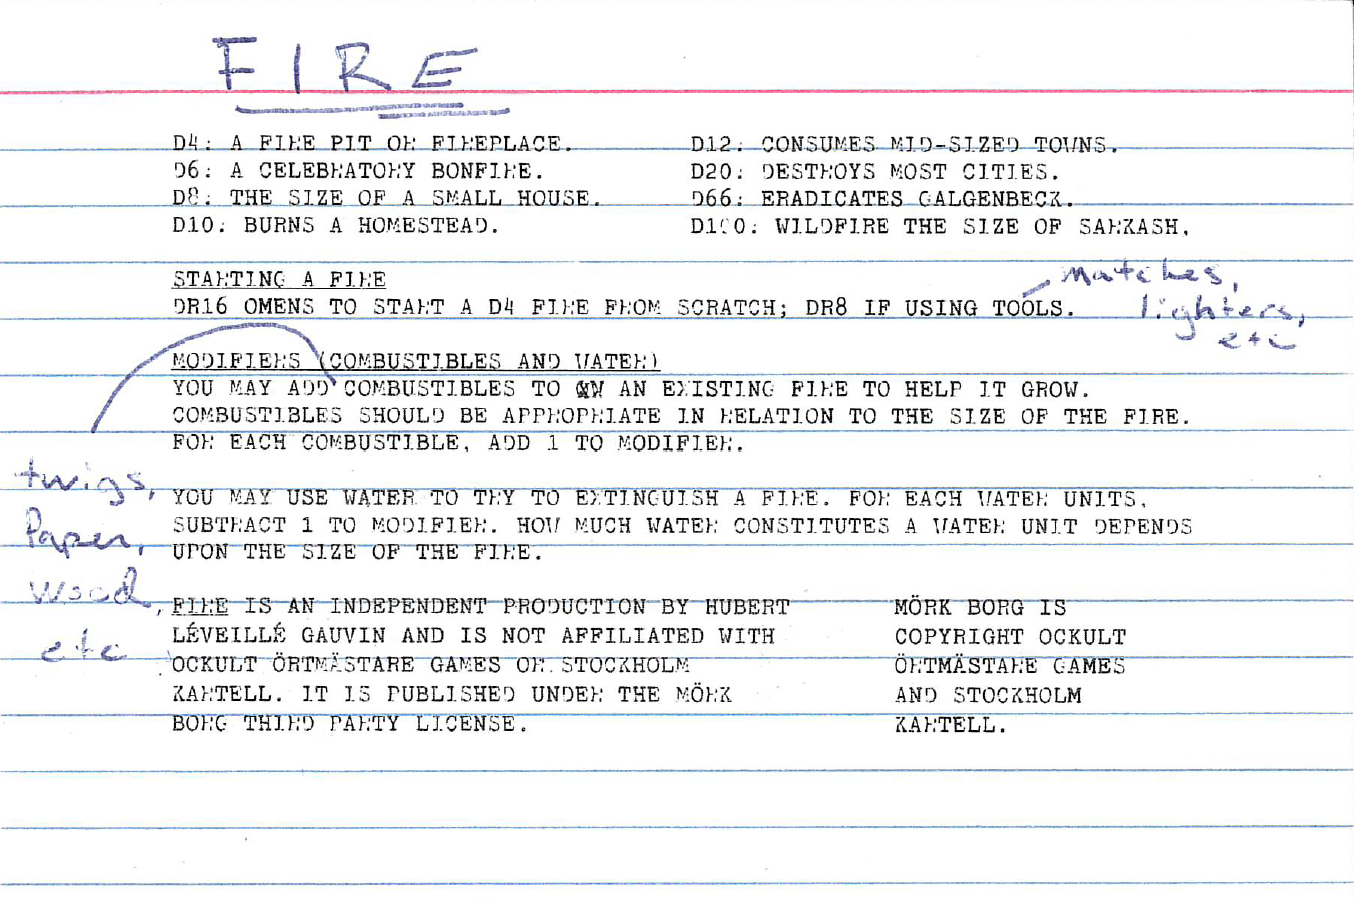 FIRE
D4: A FIRE PIT OR FIREPLACE.
D6: A CELEBRATORY BONFIRE.
D8: THE SIZE OF A SMALL HOUSE.
D10: BURNS A HOMESTEAD.
D12: CONSUMES MID-SIZED TOWNS.
D20: DESTROYS MOST CITIES.
D66: ERADICATES GALGENBECK.
D100: WILDFIRE THE SIZE OF SARKASH.
STARTING A FIRE
DR16 OMENS TO START A D4 FIRE FROM SCRATCH; DR8 IF USING TOOLS.
matches,
lighters,
etc
MODIFIERS (COMBUSTIBLES AND WATER)
YOU MAY ADD COMBUSTIBLES TO AN EXISTING FIRE TO HELP IT GROW.
COMBUSTIBLES SHOULD BE APPROPRIATE IN RELATION TO THE SIZE OF THE FIRE.
FOR EACH COMBUSTIBLE, ADD 1 TO MODIFIER.
twigs,
Paper,
wood,
etc
YOU MAY USE WATER TO TRY TO EXTINGUISH A FIRE. FOR EACH WATER UNITS,
SUBTRACT 1 TO MODIFIER. HOW MUCH WATER CONSTITUTES A WATER UNIT DEPENDS
UPON THE SIZE OF THE FIRE.
FIRE IS AN INDEPENDENT PRODUCTION BY HUBERT
LÉVEILLÉ GAUVIN AND IS NOT AFFILIATED WITH
OCKULT ÖRTMÄSTARE GAMES OR STOCKHOLM
KARTELL. IT IS PUBLISHED UNDER THE MÖRK
BORG THIRD PARTY LICENSE.
MÖRK BORG IS
COPYRIGHT OCKULT
ÖRTMÄSTARE GAMES
AND STOCKHOLM
KARTELL.